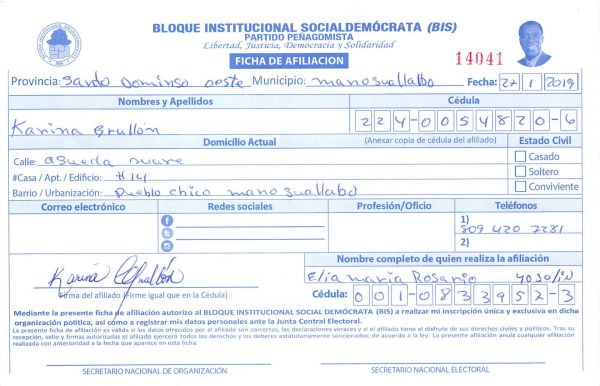 BLOQUE INSTITUCIONAL SOCIALDEMÓCRATA (BIS)
PARTIDO PEÑAGOMISTA
Libertad, Justicia, Democracia y Solidaridad
FICHA DE AFILIACION
14041
Provincia: Santo Domingo oeste Municipio: manoguallabo Fecha: 27 1 2019
Nombres y Apellidos Cédula
Karina Grullón 224-0054820-6
Domicilio Actual (Anexar copia de cédula del afiliado) Estado Civil
Calle: agueda suare Casado
#Casa / Apt. / Edificio: #14 Soltero
Barrio / Urbanización: Pueblo chico manoguallabo Conviviente
Correo electrónico Redes sociales Profesión/Oficio Teléfonos
1) 809 420 7281
2)
Nombre completo de quien realiza la afiliación
Karina Grullón Elia maria Rosario
Firma del afiliado (Firme igual que en la Cédula) Cédula: 001-0833952-3
Mediante la presente ficha de afiliación autorizo al BLOQUE INSTITUCIONAL SOCIAL DEMÓCRATA (BIS) a realizar mi inscripción única y exclusiva en dicha
organización política, así cómo a registrar mis datos personales ante la Junta Central Electoral.
La presente ficha de afiliación es válida si los datos ofrecidos por el afiliado son correctos, las declaraciones veraces y si el afiliado tiene el disfrute de sus derechos civiles y políticos. Tras su
recepción, sello y firmas autorizadas el afiliado ejercerá todos los derechos y los deberes estatutariamente sancionados, de acuerdo a la ley. La presente afiliación anula cualquier afiliación
realizada con anterioridad a la fecha que aparece en esta ficha.
SECRETARIO NACIONAL DE ORGANIZACIÓN SECRETARIO NACIONAL ELECTORAL